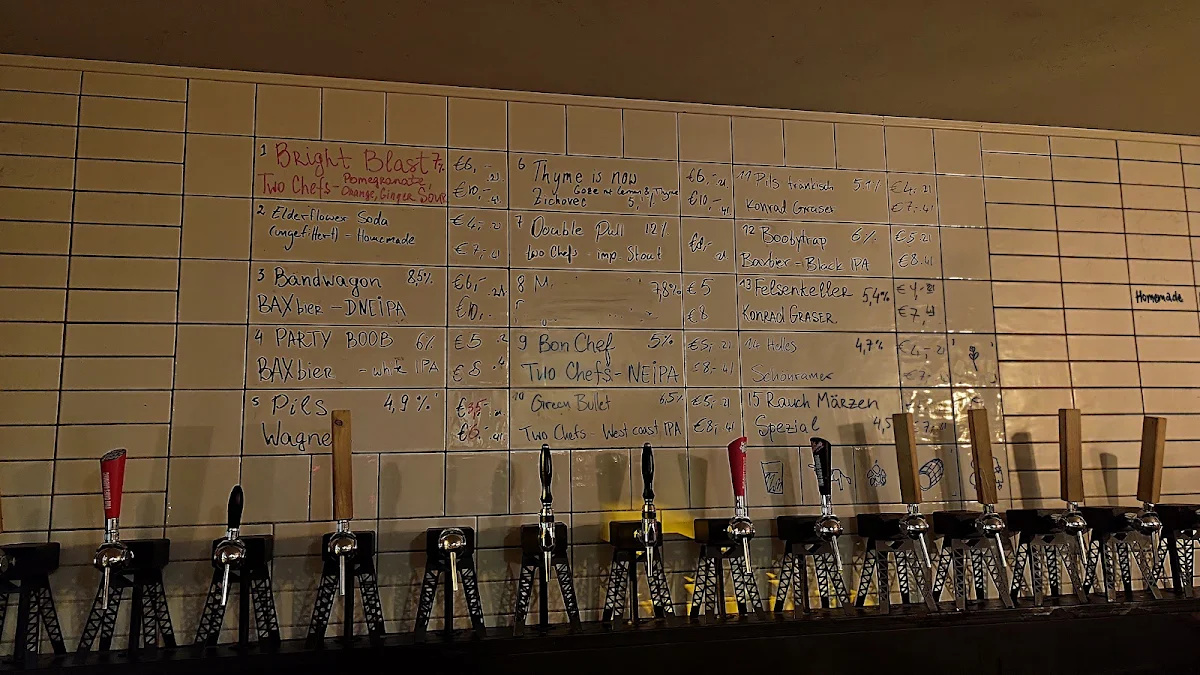 1 Bright Blast 7%
Two Chefs - Pomegranate,
Orange, Ginger Sour
€6,- .2l
€10,- .4l
2 Elderflower Soda
(ungefiltert) - Homemade
€4,- .2l
€7,- .4l
3 Bandwagon 8,5%
BAXbier - DNEIPA
€6,- .2l
€10,-
4 PARTY BOOB 6%
BAXbier - white IPA
€5 .2
€8 .4
5 Pils 4,9%
Wagne
€3,5
€6,- .4l
6 Thyme is now
Gose w Lemon & Thyme
Zichovec 5,1%
€6,- .2l
€10,- .4l
7 Double Pull 12%
two Chefs - imp. Stout
.2l
8 M. 7,8%
€5
€8
9 Bon Chef 5%
Two Chefs - NEIPA
€5,- .2l
€8,- .4l
10 Green Bullet 6,5%
Two Chefs - West coast IPA
€5,- .2l
€8,- .4l
11 Pils fränkisch 5.1%
Konrad Graser
€4,- .2l
€7,- .4l
12 Boobytrap 6%
Baxbier - Black IPA
€5 .2l
€8 .4l
13 Felsenkeller 5,4%
KONRAD GRASER
€4,-
€7,
14 Helles 4,7%
Schönramer
€4,- .2l
€7,-
15 Rauch Märzen
Spezial 4,5
€7,-
Homemade